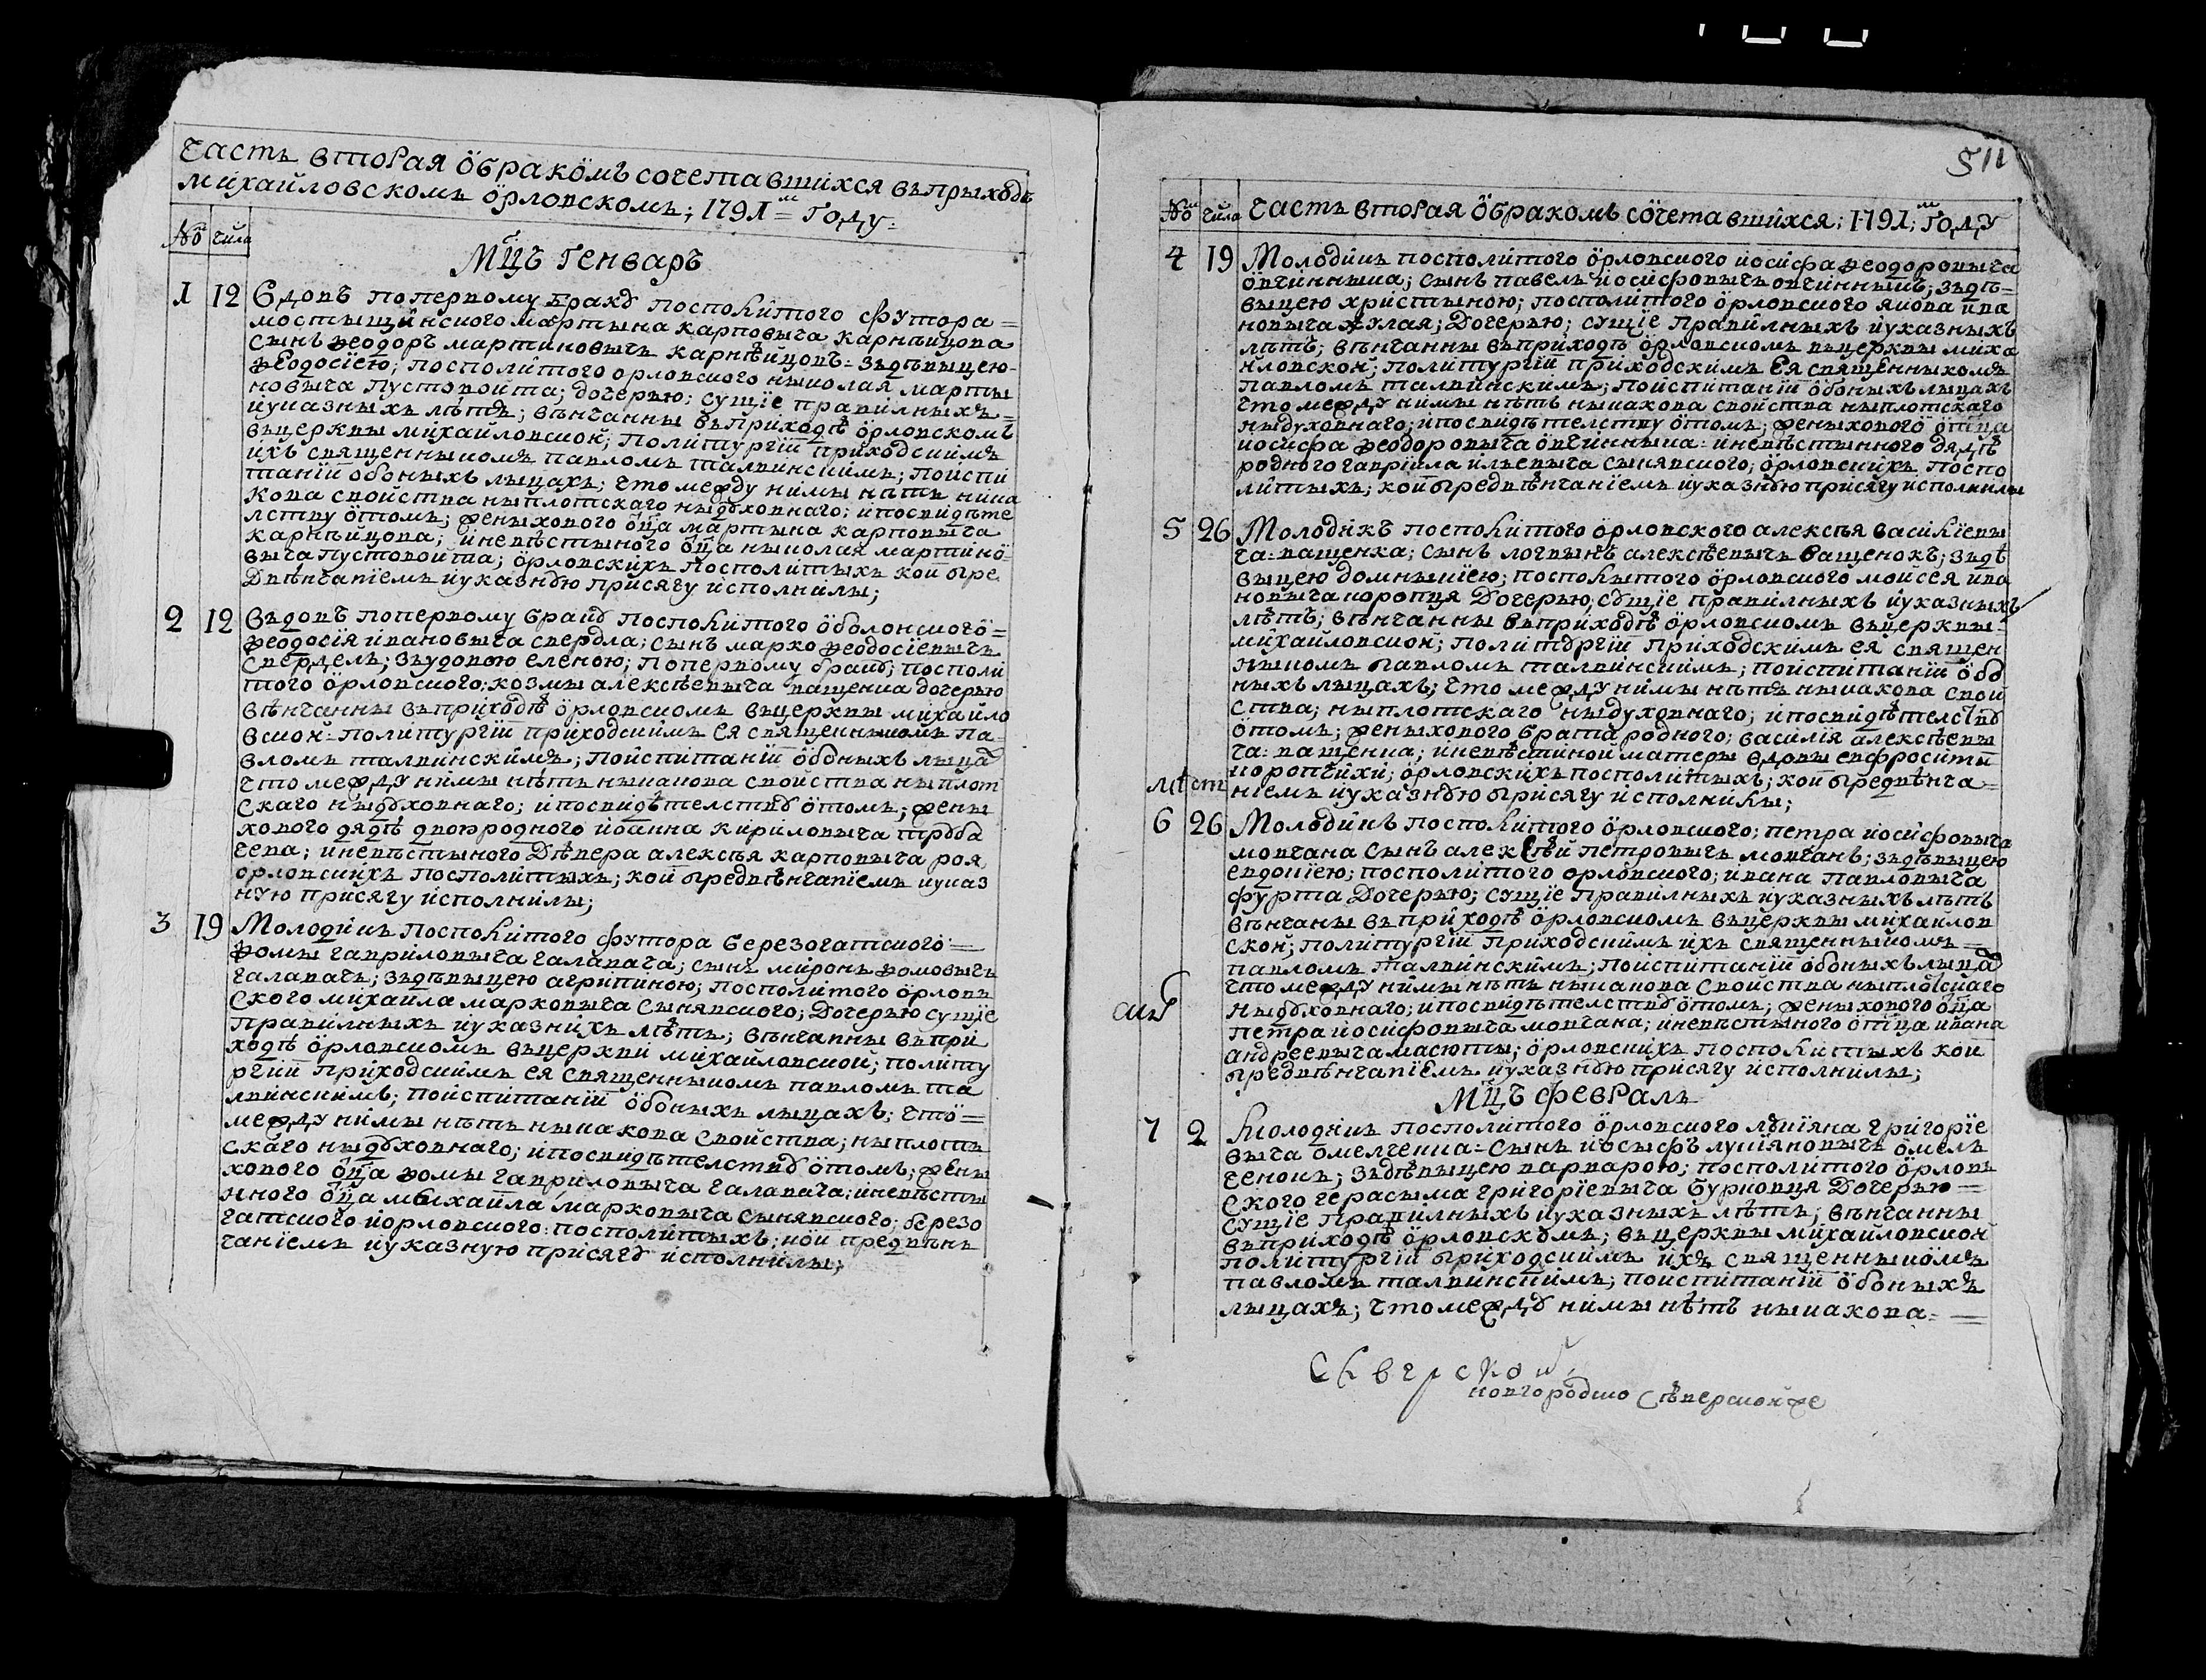 часть вторая ѡ бракомъ сочетавшихся въ прыходѣ
михайловскомъ орловскомъ; 1791м году
№ чила
Мцъ генваръ
1 12 Вдовъ поперв​ому бракꙋ посполитого футора
мостыщинского мартына карповыча карнѣицова
сынъ ѳеодоръ мартиновычъ карнѣйцовъ зъ дѣвыцею
ѳеодосіею; посполитого орловского ныколая марты
новыча пустовойта; дочерью; сущіе правилныхъ
и указныхъ лѣтъ; вѣнчанны въ приходѣ орловскомъ
въ церквы михайловской; по литургіи приходскимъ
ихъ священныкомъ павломъ талвинскимъ; по испи
таніи обоныхъ лыцахъ; что между нимы нѣтъ ныка
кова свойства ны плотскаго ны дꙋховнаго; и по свидѣте
лству о томъ; женыхового оц҃а мартына карповыча
карнѣицова; и невѣстыного оц҃а ныколая мартино
выча пустовойта; орловскихъ посполитыхъ кой пре
двѣнчаніемъ и указнꙋю присягу исполнилы;
2 12 Въдовъ поперво​му бракꙋ посполитого оболонского
ѳеодосія ивановыча свердла; сынъ марко ѳеодосіевычъ
свердель; зъ удовою еленою; поперво​му бракꙋ; посполи
того орловского; козмы алексѣевыча ващенка дочерью
вѣнчанны въ приходѣ орловскомъ въ церквы михайло
вской по литургіи приходскимъ ея священныкомъ па
вломъ талвинскимъ; по испитаніи обоныхъ лыцаⷯ
что между нимы нѣтъ ныкакова свойства ны плот
скаго ны дꙋховнаго; и по свидѣтелствꙋ о томъ; жены
хового дядѣ двоюродного иоанна кириловыча трꙋба
чева; и невѣстыного дѣвера алексѣя карповыча роя
орловскихъ посполитыхъ; кой предвѣнчаніемъ и указ
ную присягу исполнилы;
3 19 Молодикъ посполитого футора березоватского
ѳомы гавриловыча галагача; сынъ миронъ ѳомовычъ
галагачъ; зъ дѣвыцею агрипиною; посполитого орлов
ского михаила марковыча сынявского; дочерью сущіе
правилныхъ и указнихъ лѣтъ; вѣнчанны въ при
ходѣ орловскомъ въ церкви михайловской; по литу
ргіи приходскимъ ея священныкомъ павломъ та
лвинскимъ; по испитаніи обоныхъ лыцахъ; что
между нимы нѣтъ ныкакова свойства; ны плот
скаго ны дꙋховнаго; и по свидѣтелствꙋ о томъ; жены
хового оц҃а ѳомы гавриловыча галагача; и невѣсты
нного оц҃а михаила марковыча сынявского; березо
ватского и орловского посполитыхъ; кои предвѣн
чаніемъ и указную присягꙋ исполнилы;
511
№ чила часть вторая ѡ бракомъ сочетавшихся; 1791; м году
4 19 Молодикъ посполитого орловского иосифа ѳеодоровыча
овчинныка; сынъ павелъ иосифовычъ овчинныкъ; зъ дѣ
выцею христыною; посполитого орловского якова ива
новыча жулая; дочерью; сущіе правилныхъ и указныхъ
лѣтъ; вѣнчанны въ приходѣ орловскомъ въ церквы миха
йловской; по литургіи приходскимъ ея священныкомъ
павломъ талвинскимъ; по испитаніи обоныхъ лыцахъ
что между нимы нѣтъ ныкакова свойства ны плотскаго
ны духовнаго; и по свидѣтелству о томъ; женыхового отца
иосифа ѳеодоровыча овчинныка и невѣстынного дядѣ
родного гавріила ильевыча сынявского; орловскихъ поспо
литыхъ; кой предвѣнчаніемъ и указнꙋю присягу исполнилы
5 26 Молодикъ посполитого орловского алексѣя василіевы
ча ващенка; сынъ логвынъ алексѣевычъ ващенокъ; зъ дѣ
выцею домныкіею; посполытого орловского мойсея ива
новыча коропця дочерью; сꙋщіе правилныхъ и указныхъ
лѣтъ; вѣнчанны въ приходѣ орловскомъ въ церквы
михайловской; по литꙋргіи приходскимъ ея священ
ныкомъ павломъ талвинскимъ; по испитаніи обо
ныхъ лыцахъ; что между нимы нѣтъ ныкакова свой
ства; ны плотскаго ны духовнаго; и по свидѣтелствꙋ
о томъ; женыхового брата родного; василія алексѣевы
ча ващенка; и невѣстиной матеры вдовы евфросини
коропчихи; орловскихъ посполитыхъ; кой предвѣнча
ніемъ и указнꙋю присягу исполнилы;
6 26 Молодикъ посполитого орловского; петра иосифовыча
мовчана сынъ алексѣй петровычъ мовчанъ; зъ дѣвыцею
евдокіею; посполитого орловского; ивана павловыча
фурта дочерью; сущіе правилныхъ и указныхъ лѣтъ
вѣнчаны въ приходѣ орловскомъ въ церквы михайлов
ской; по литургіи приходскимъ ихъ священныкомъ
павломъ талвинскимъ; по испитаніи обоныхъ лыцаⷯ
что между нимы нѣтъ ныкакова свойства ны плотскаго
ны дꙋховнаго; и по свидѣтелствꙋ о томъ; женыхового оц҃а
петра иосифовыча мовчана; и невѣстыного отца ивана
андреевыча масюты; орловскихъ посполитыхъ кои
предвѣнчаніемъ и указнꙋю присягу исполнилы;
Мцъ февралъ
7 2 Молодикъ посполитого орловского лꙋкіяна григоріе
выча омелченка сынъ иосыфъ лукіяновычъ омель
ченокъ; зъ дѣвыцею варварою; посполитого орлов
ского герасыма григоріевыча бурковця дочерью
сущіе правилныхъ и указныхъ лѣтъ; вѣнчанны
въ приходѣ орловскомъ; въ церквы михайловской
по литургіи приходскимъ ихъ священныкомъ
павломъ талвинскимъ; по испитаніи обоныхъ
лыцахъ; что междꙋ нимы нѣтъ ныкакова
новгородко сѣверской же